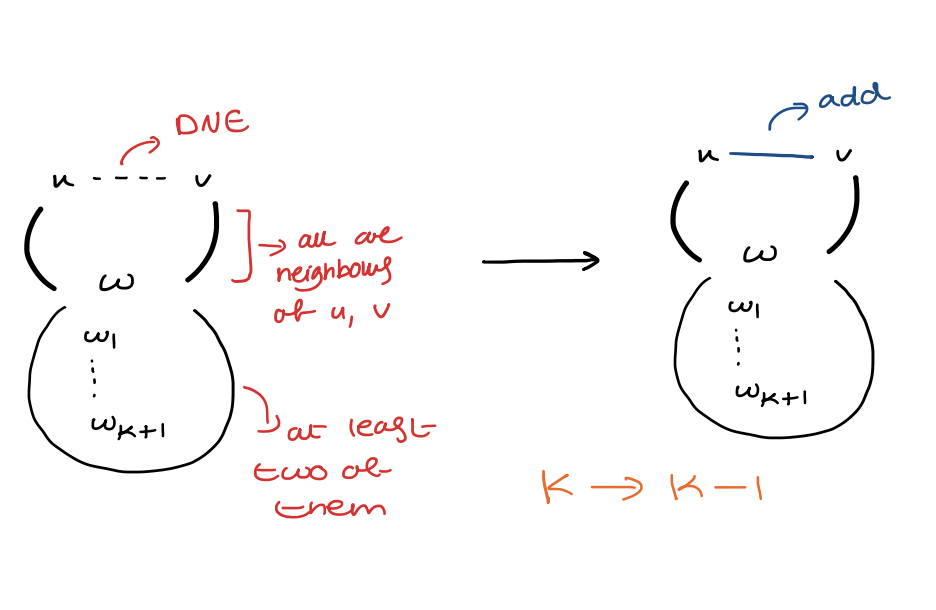 DNE
u - - - - v
all are
neighbours
of u, v
w
w1
wk+1
at least
two of
them
add
u v
w
w1
wk+1
K → K-1